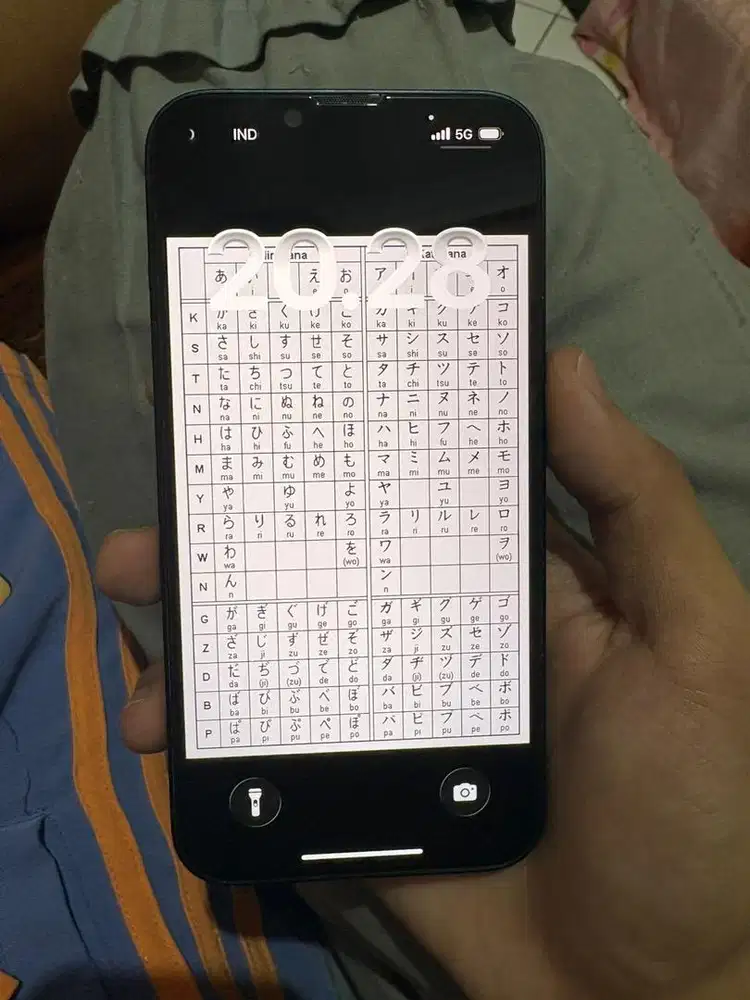 IND 5G
20.28
あ え お ア オ
o
K か き く け こ カ キ ク ケ コ
ka ki ku ke ko ka ki ku ke ko
S さ し す せ そ サ シ ス セ ソ
sa shi su se so sa shi su se so
T た ち つ て と タ チ ツ テ ト
ta chi tsu te to ta chi tsu te to
N な に ぬ ね の ナ ニ ヌ ネ ノ
na ni nu ne no na ni nu ne no
H は ひ ふ へ ほ ハ ヒ フ ヘ ホ
ha hi fu he ho ha hi fu he ho
M ま み む め も マ ミ ム メ モ
ma mi mu me mo ma mi mu me mo
Y や ゆ よ ヤ ユ ヨ
ya yu yo ya yu yo
R ら り る れ ろ ラ リ ル レ ロ
ra ri ru re ro ra ri ru re ro
W わ を ワ ヲ
wa (wo) wa (wo)
N ん ン
n n
G が ぎ ぐ げ ご ガ ギ グ ゲ ゴ
ga gi gu ge go ga gi gu ge go
Z ざ じ ず ぜ ぞ ザ ジ ズ ゼ ゾ
za ji zu ze zo za ji zu ze zo
D だ ぢ づ で ど ダ ヂ ヅ デ ド
da (ji) (zu) de do da (ji) (zu) de do
B ば び ぶ べ ぼ バ ビ ブ ベ ボ
ba bi bu be bo ba bi bu be bo
P ぱ ぴ ぷ ぺ ぽ パ ピ プ ペ ポ
pa pi pu pe po pa pi pu pe po